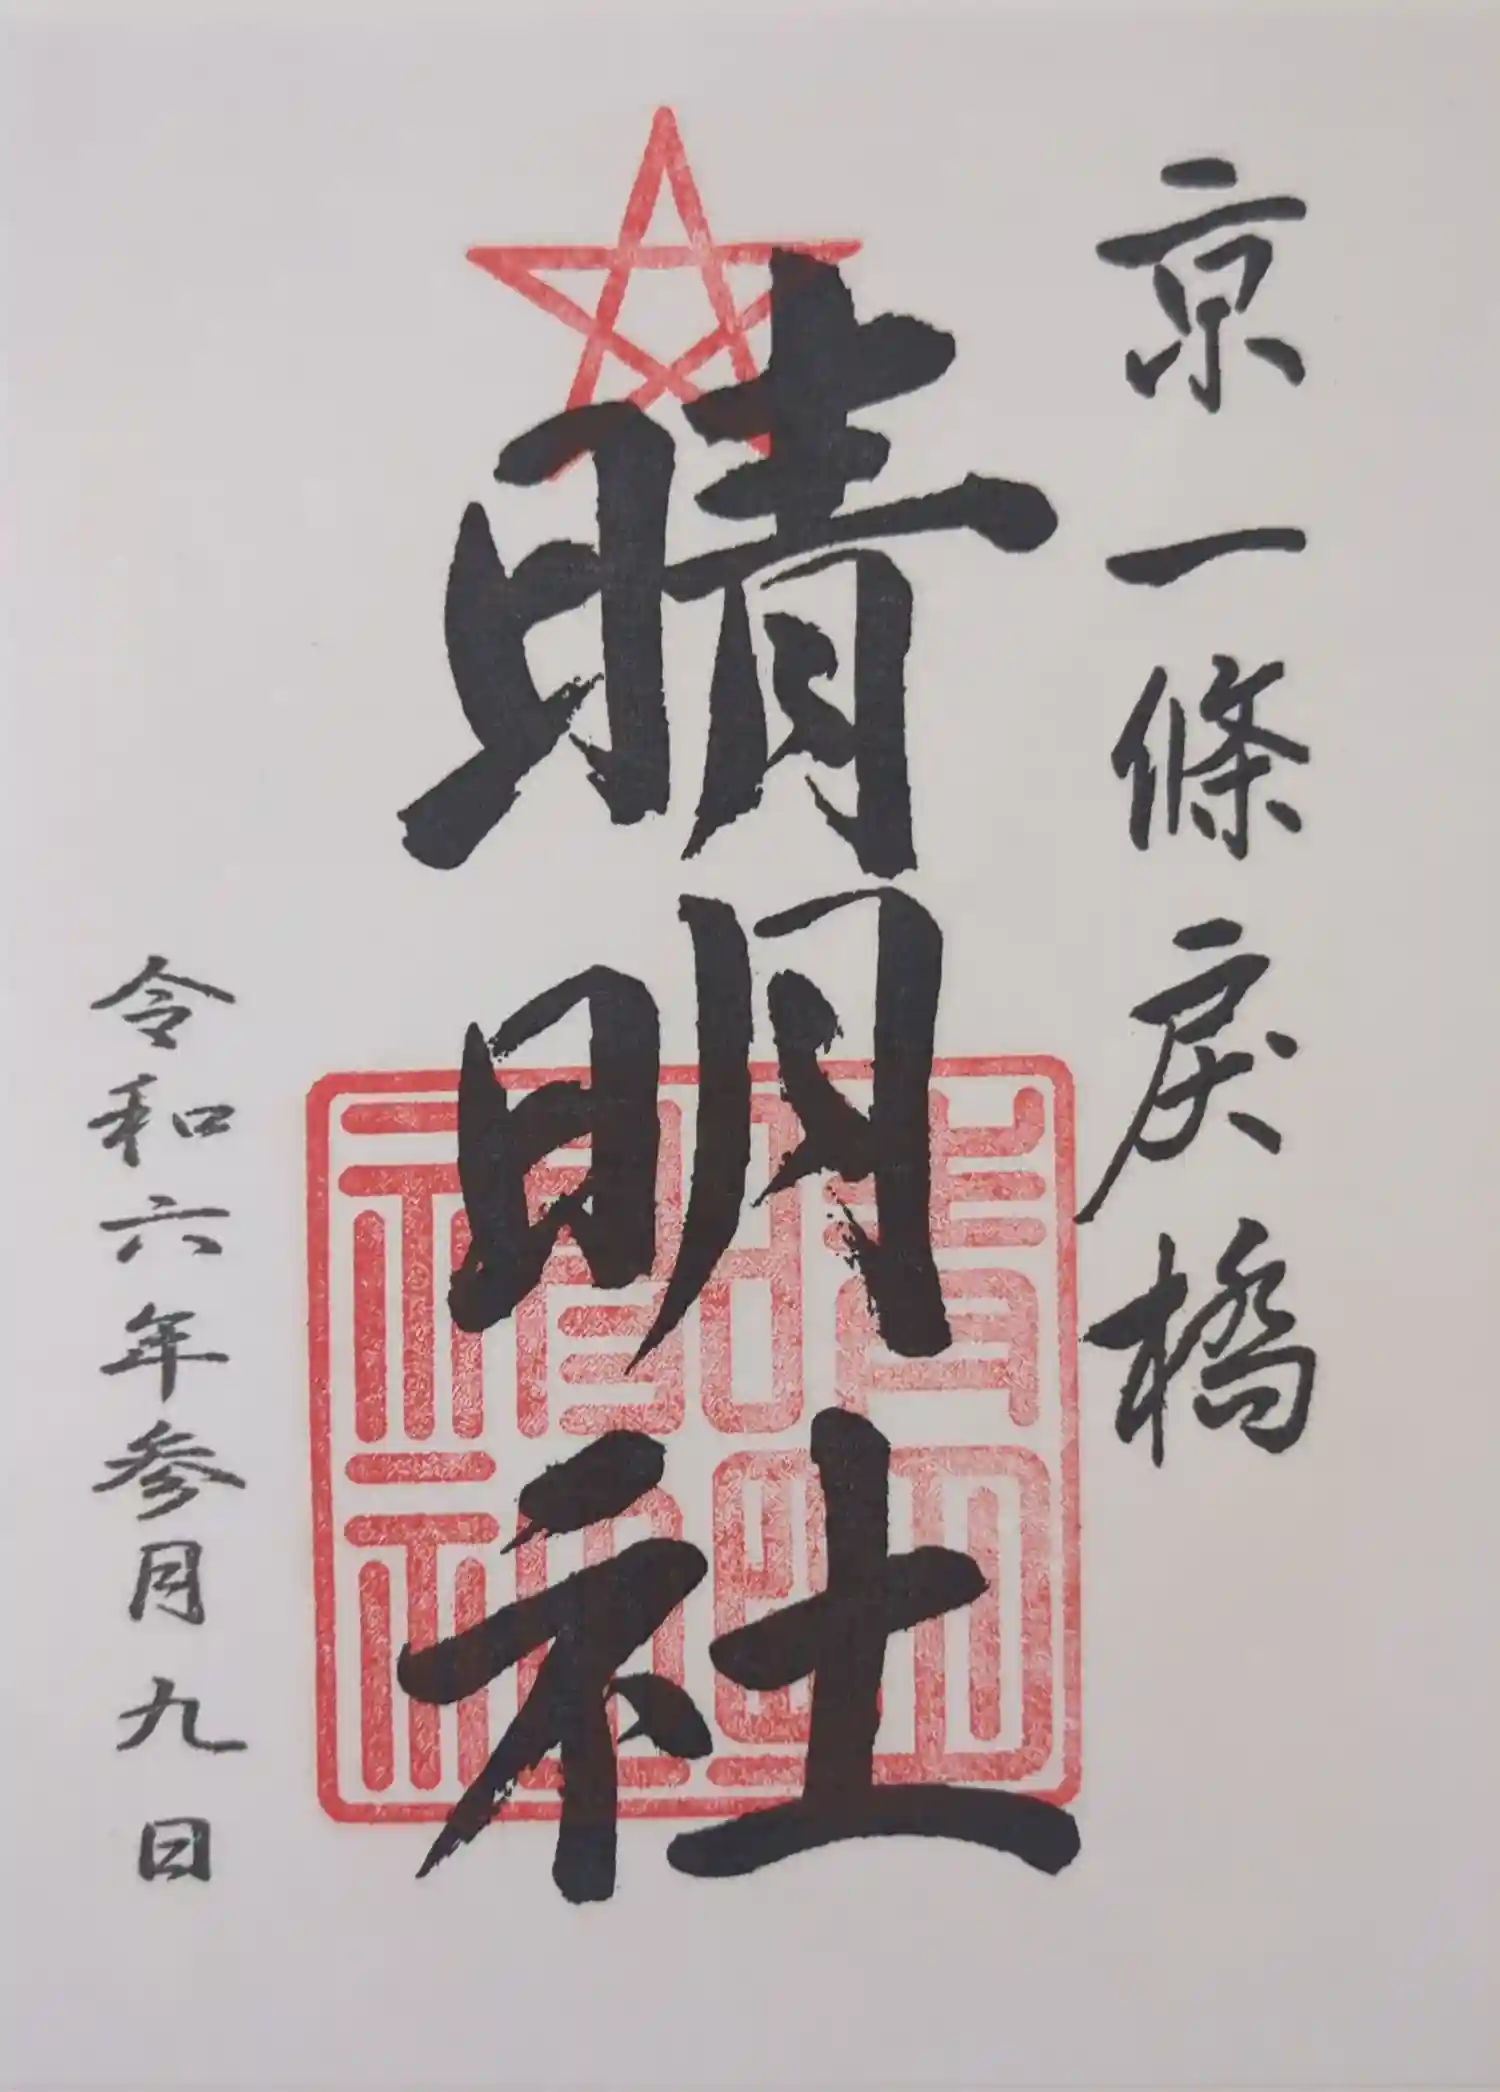 京一條戻橋
晴明社
晴明神社
令和六年参月九日